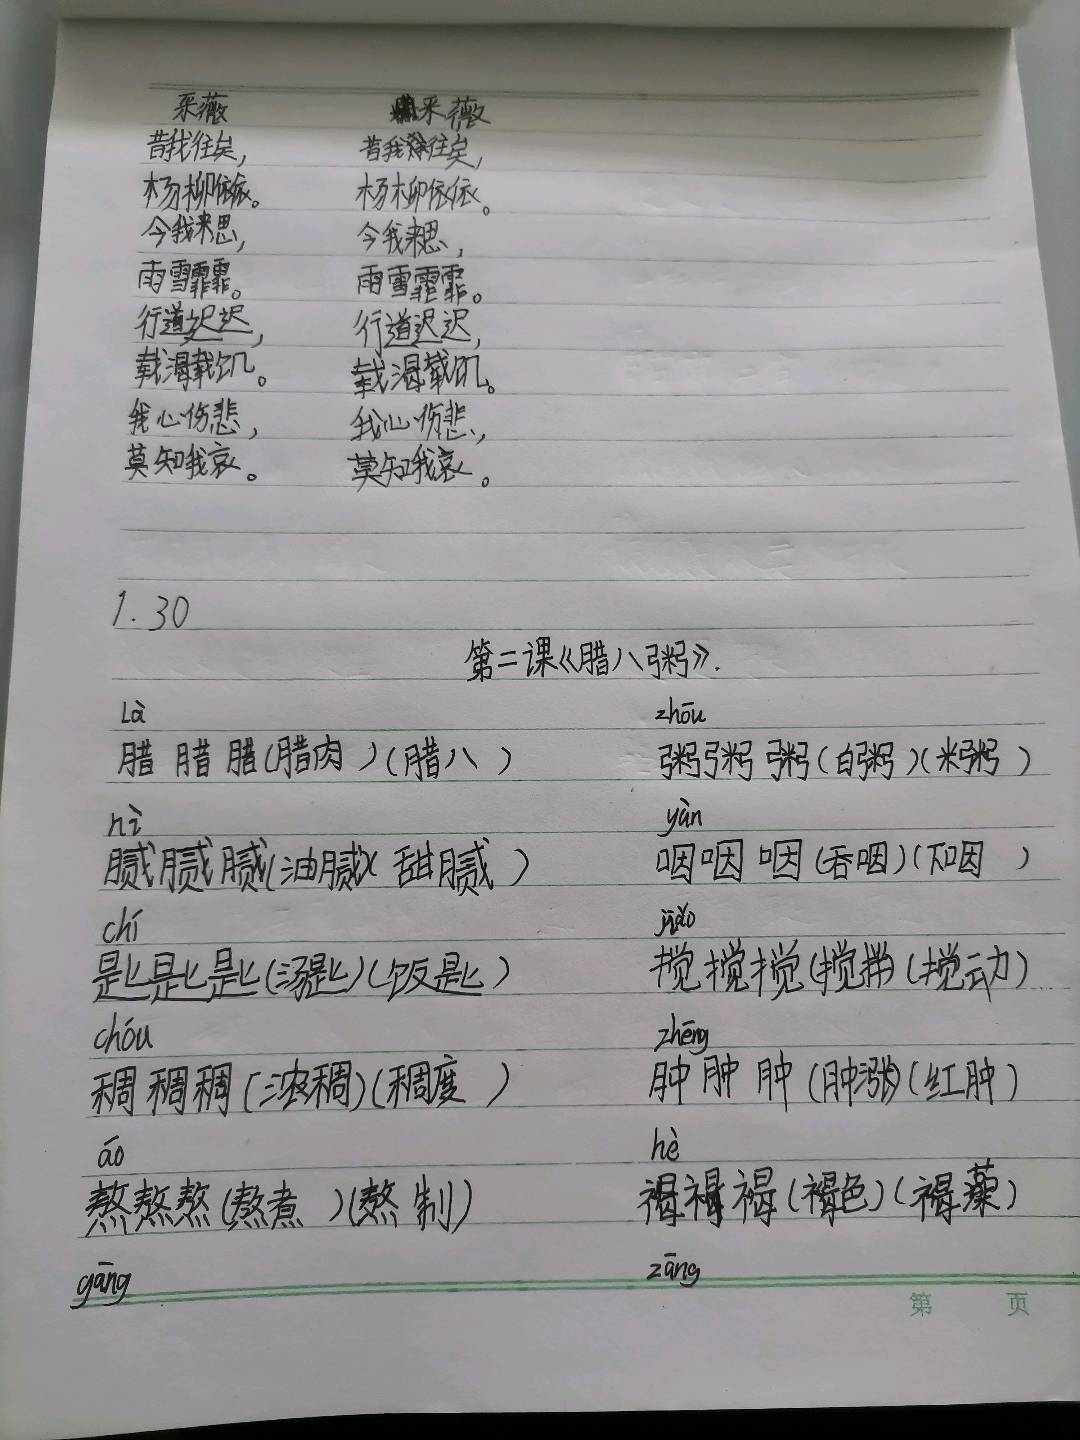 采薇 采薇
昔我往矣, 昔我往矣,
杨柳依依。 杨柳依依。
今我来思, 今我来思,
雨雪霏霏。 雨雪霏霏。
行道迟迟, 行道迟迟,
载渴载饥。 载渴载饥。
我心伤悲, 我心伤悲,
莫知我哀。 莫知我哀。
1.30
第二课《腊八粥》.
Là zhōu
腊 腊 腊(腊肉 )(腊八 ) 粥粥 粥(白粥)(米粥 )
nì yàn
腻腻腻(油腻)(甜腻 ) 咽咽 咽(吞咽)(下咽 )
chí jiǎo
匙匙匙(汤匙)(饭匙) 搅搅搅(搅拌)(搅动)
chóu zhēng
稠稠稠(浓稠)(稠度 ) 肿肿肿(肿涨)(红肿)
áo hè
熬熬熬(熬煮 )(熬制) 褐褐褐(褐色)(褐藻)
gāng zāng
第 页